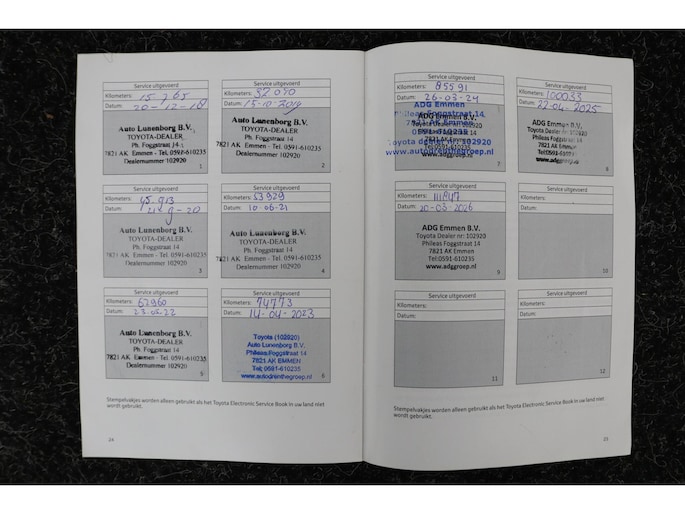 Service uitgevoerd
Kilometers: 15.765
Datum: 20-12-18
Auto Lunenborg B.V.
TOYOTA-DEALER
Ph. Foggstraat 14
7821 AK Emmen - Tel. 0591-610235
Dealernummer 102920
1
Service uitgevoerd
Kilometers: 32.040
Datum: 15-10-2019
Auto Lunenborg B.V.
TOYOTA-DEALER
Ph. Foggstraat 14
7821 AK Emmen - Tel. 0591-610235
Dealernummer 102920
2
Service uitgevoerd
Kilometers: 45.913
Datum: 21-9-20
Auto Lunenborg B.V.
TOYOTA-DEALER
Ph. Foggstraat 14
7821 AK Emmen - Tel. 0591-610235
Dealernummer 102920
3
Service uitgevoerd
Kilometers: 53929
Datum: 10-06-21
Auto Lunenborg B.V.
TOYOTA-DEALER
Ph. Foggstraat 14
7821 AK Emmen - Tel. 0591-610235
Dealernummer 102920
4
Service uitgevoerd
Kilometers: 62960
Datum: 23-05-22
Auto Lunenborg B.V.
TOYOTA-DEALER
Ph. Foggstraat 14
7821 AK Emmen - Tel. 0591-610235
Dealernummer 102920
5
Service uitgevoerd
Kilometers: 74773
Datum: 14-04-2023
Toyota (102920)
Auto Lunenborg B.V.
Phileas Foggstraat 14
7821 AK EMMEN
Tel; 0591-610235
www.autodrenthegroep.nl
6
Stempelvakjes worden alleen gebruikt als het Toyota Electronic Service Book in uw land niet
wordt gebruikt.
24
Service uitgevoerd
Kilometers: 85591
Datum: 26-03-24
ADG Emmen
Phileas Foggstraat 14,
7821 AK Emmen
0591-610235
Toyota dealer nr: 102920
www.autodrenthegroep.nl
7
Service uitgevoerd
Kilometers: 100033
Datum: 22-04-2025
ADG Emmen B.V.
Toyota Dealer nr: 102920
Phileas Foggstraat 14
7821 AK Emmen
Tel:0591-610235
8
Service uitgevoerd
Kilometers: 111847
Datum: 20-03-2026
ADG Emmen B.V.
Toyota Dealer nr: 102920
Phileas Foggstraat 14
7821 AK Emmen
Tel:0591-610235
www.adggroep.nl
9
Service uitgevoerd
Kilometers:
Datum:
10
Service uitgevoerd
Kilometers:
Datum:
11
Service uitgevoerd
Kilometers:
Datum:
12
Stempelvakjes worden alleen gebruikt als het Toyota Electronic Service Book in uw land niet
wordt gebruikt.